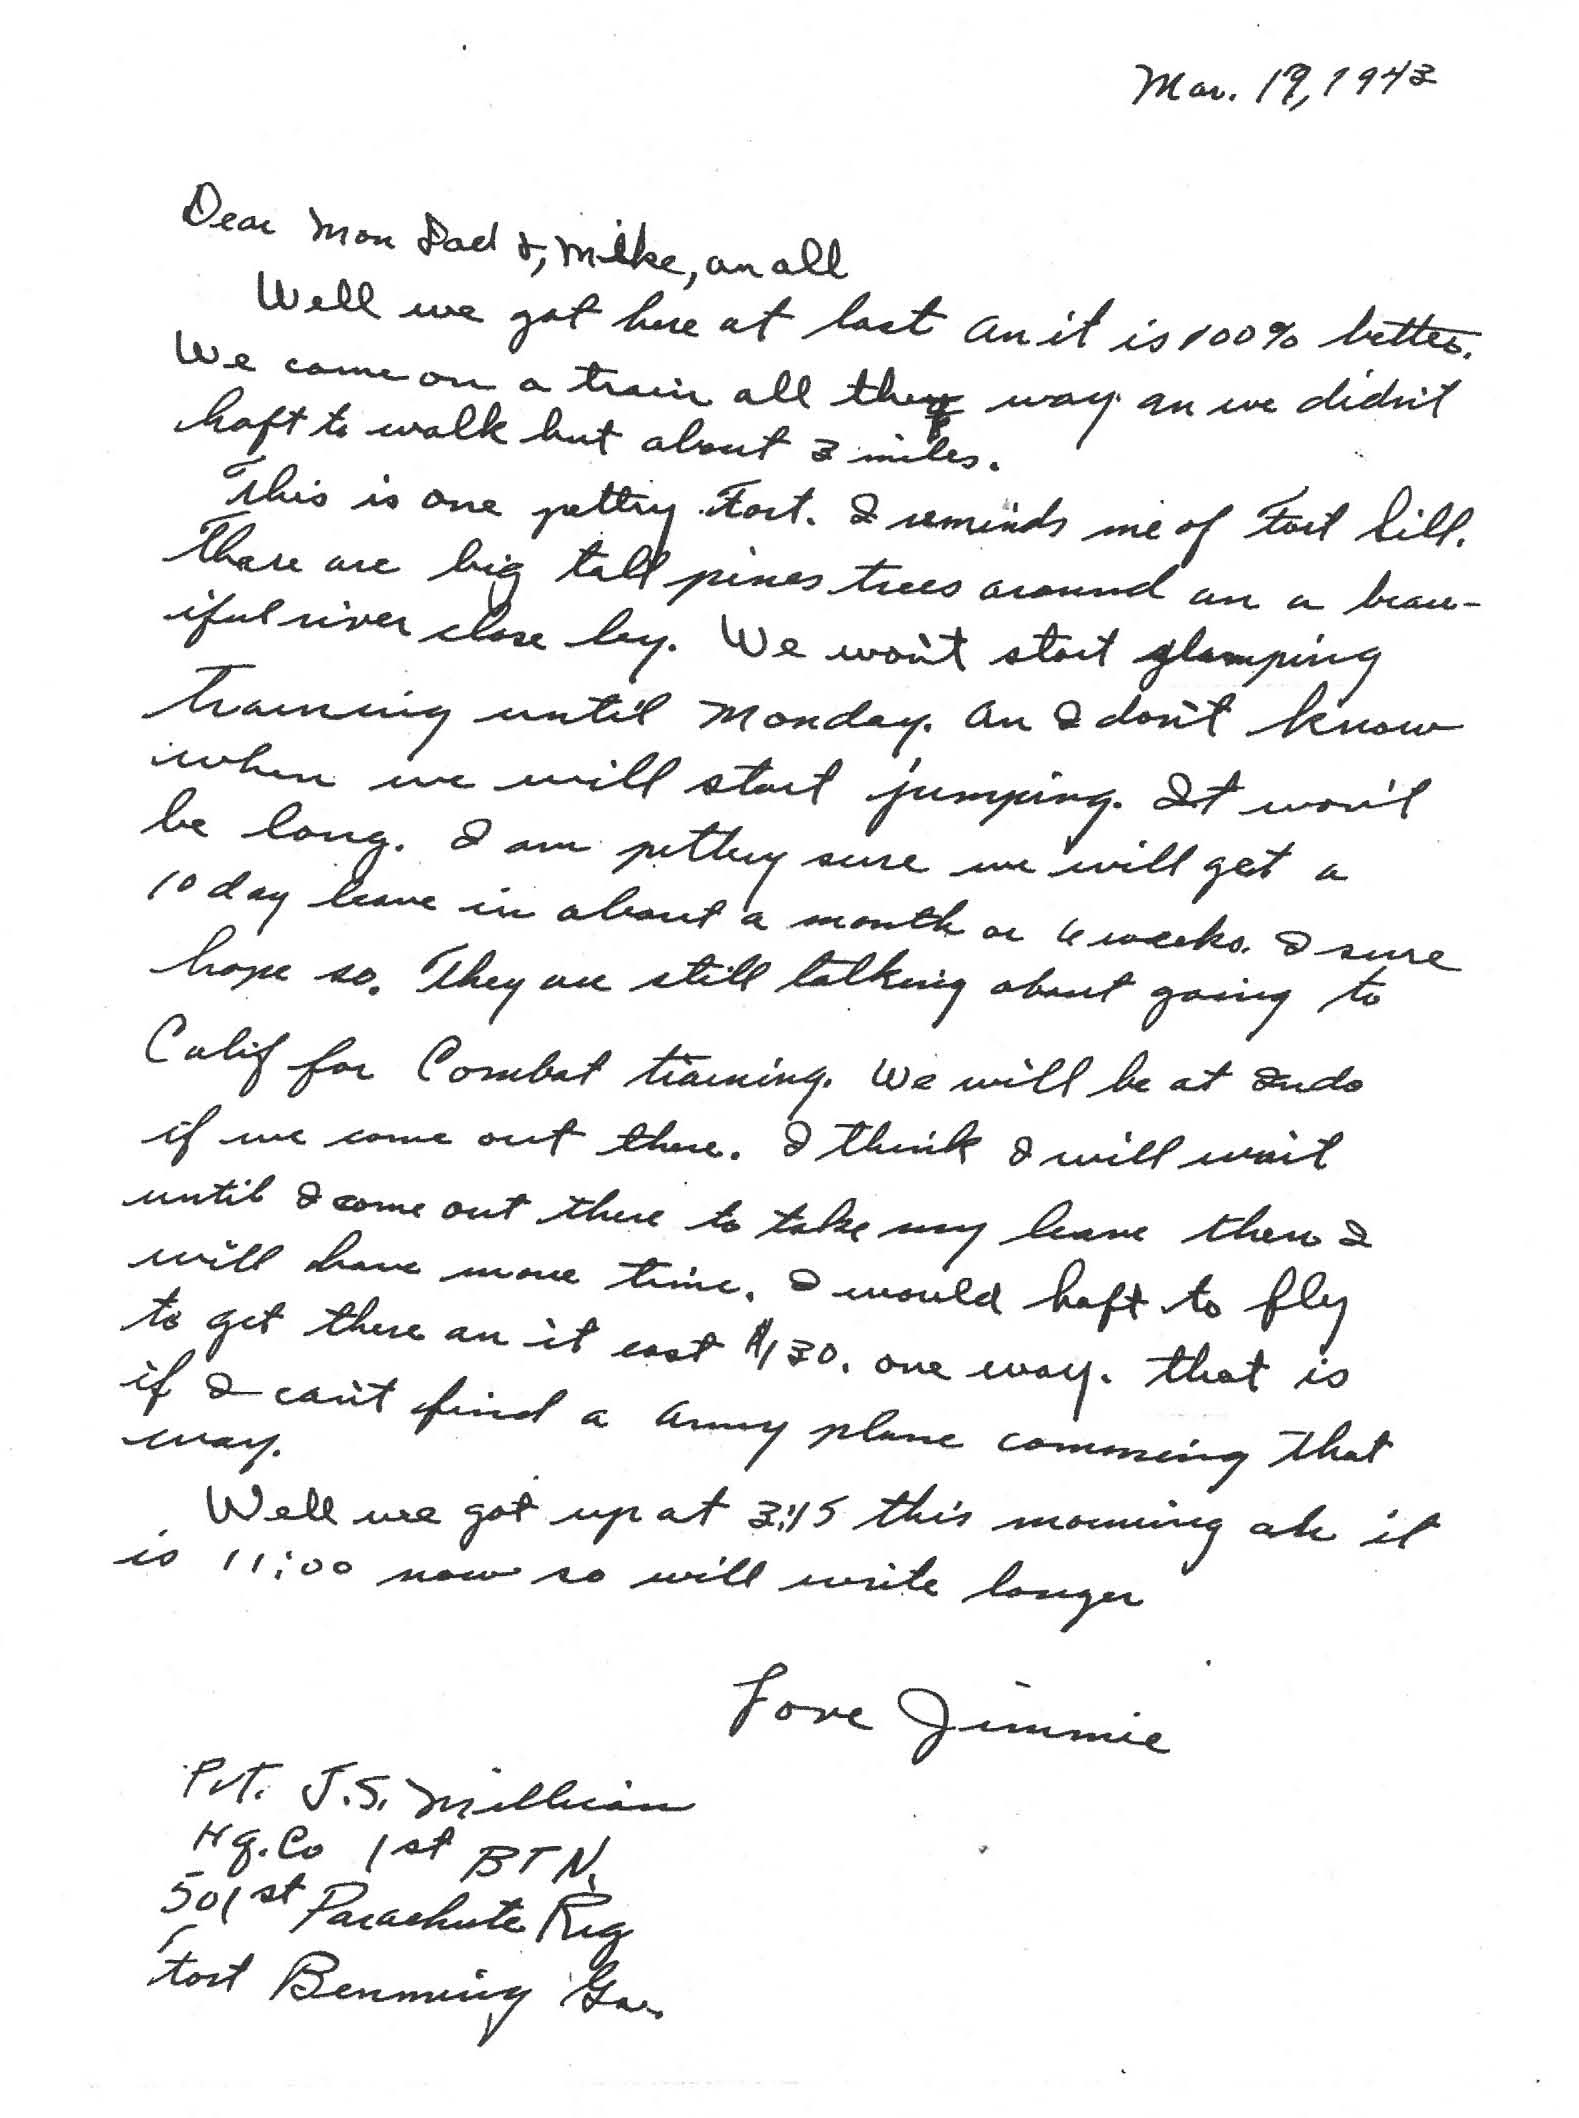 Mar. 19, 1943
Dear Mon Dad &, Mike, an all
Well we got here at last an it is 100% better.
We came on a train all the way an we didn't
haft to walk but about 3 miles.
This is one pettry Fort. I reminds me of Fort Sill.
There are big tall pines trees around an a beau-
iful river close by. We won't start
training until Monday. An I don't know
when we will start jumping. It won't
be long. I am pettry sure we will get a
10 day leave in about a month or 6 weeks. I sure
hope so. They are still talking about going to
Calif for Combat training. We will be at Indo
if we come out there. I think I will wait
until I come out there to take my leave then I
will have more time. I would haft to fly
to get there an it cost $130. one way. that is
if I can't find a army plane comming that
way.
Well we got up at 3:15 this morning an it
is 11:00 now so will write longer
Love Jimmie
Pvt. J.S. Millican
Hq. Co 1st BTN.
501st Parachute Rig
Fort Benning Ga.